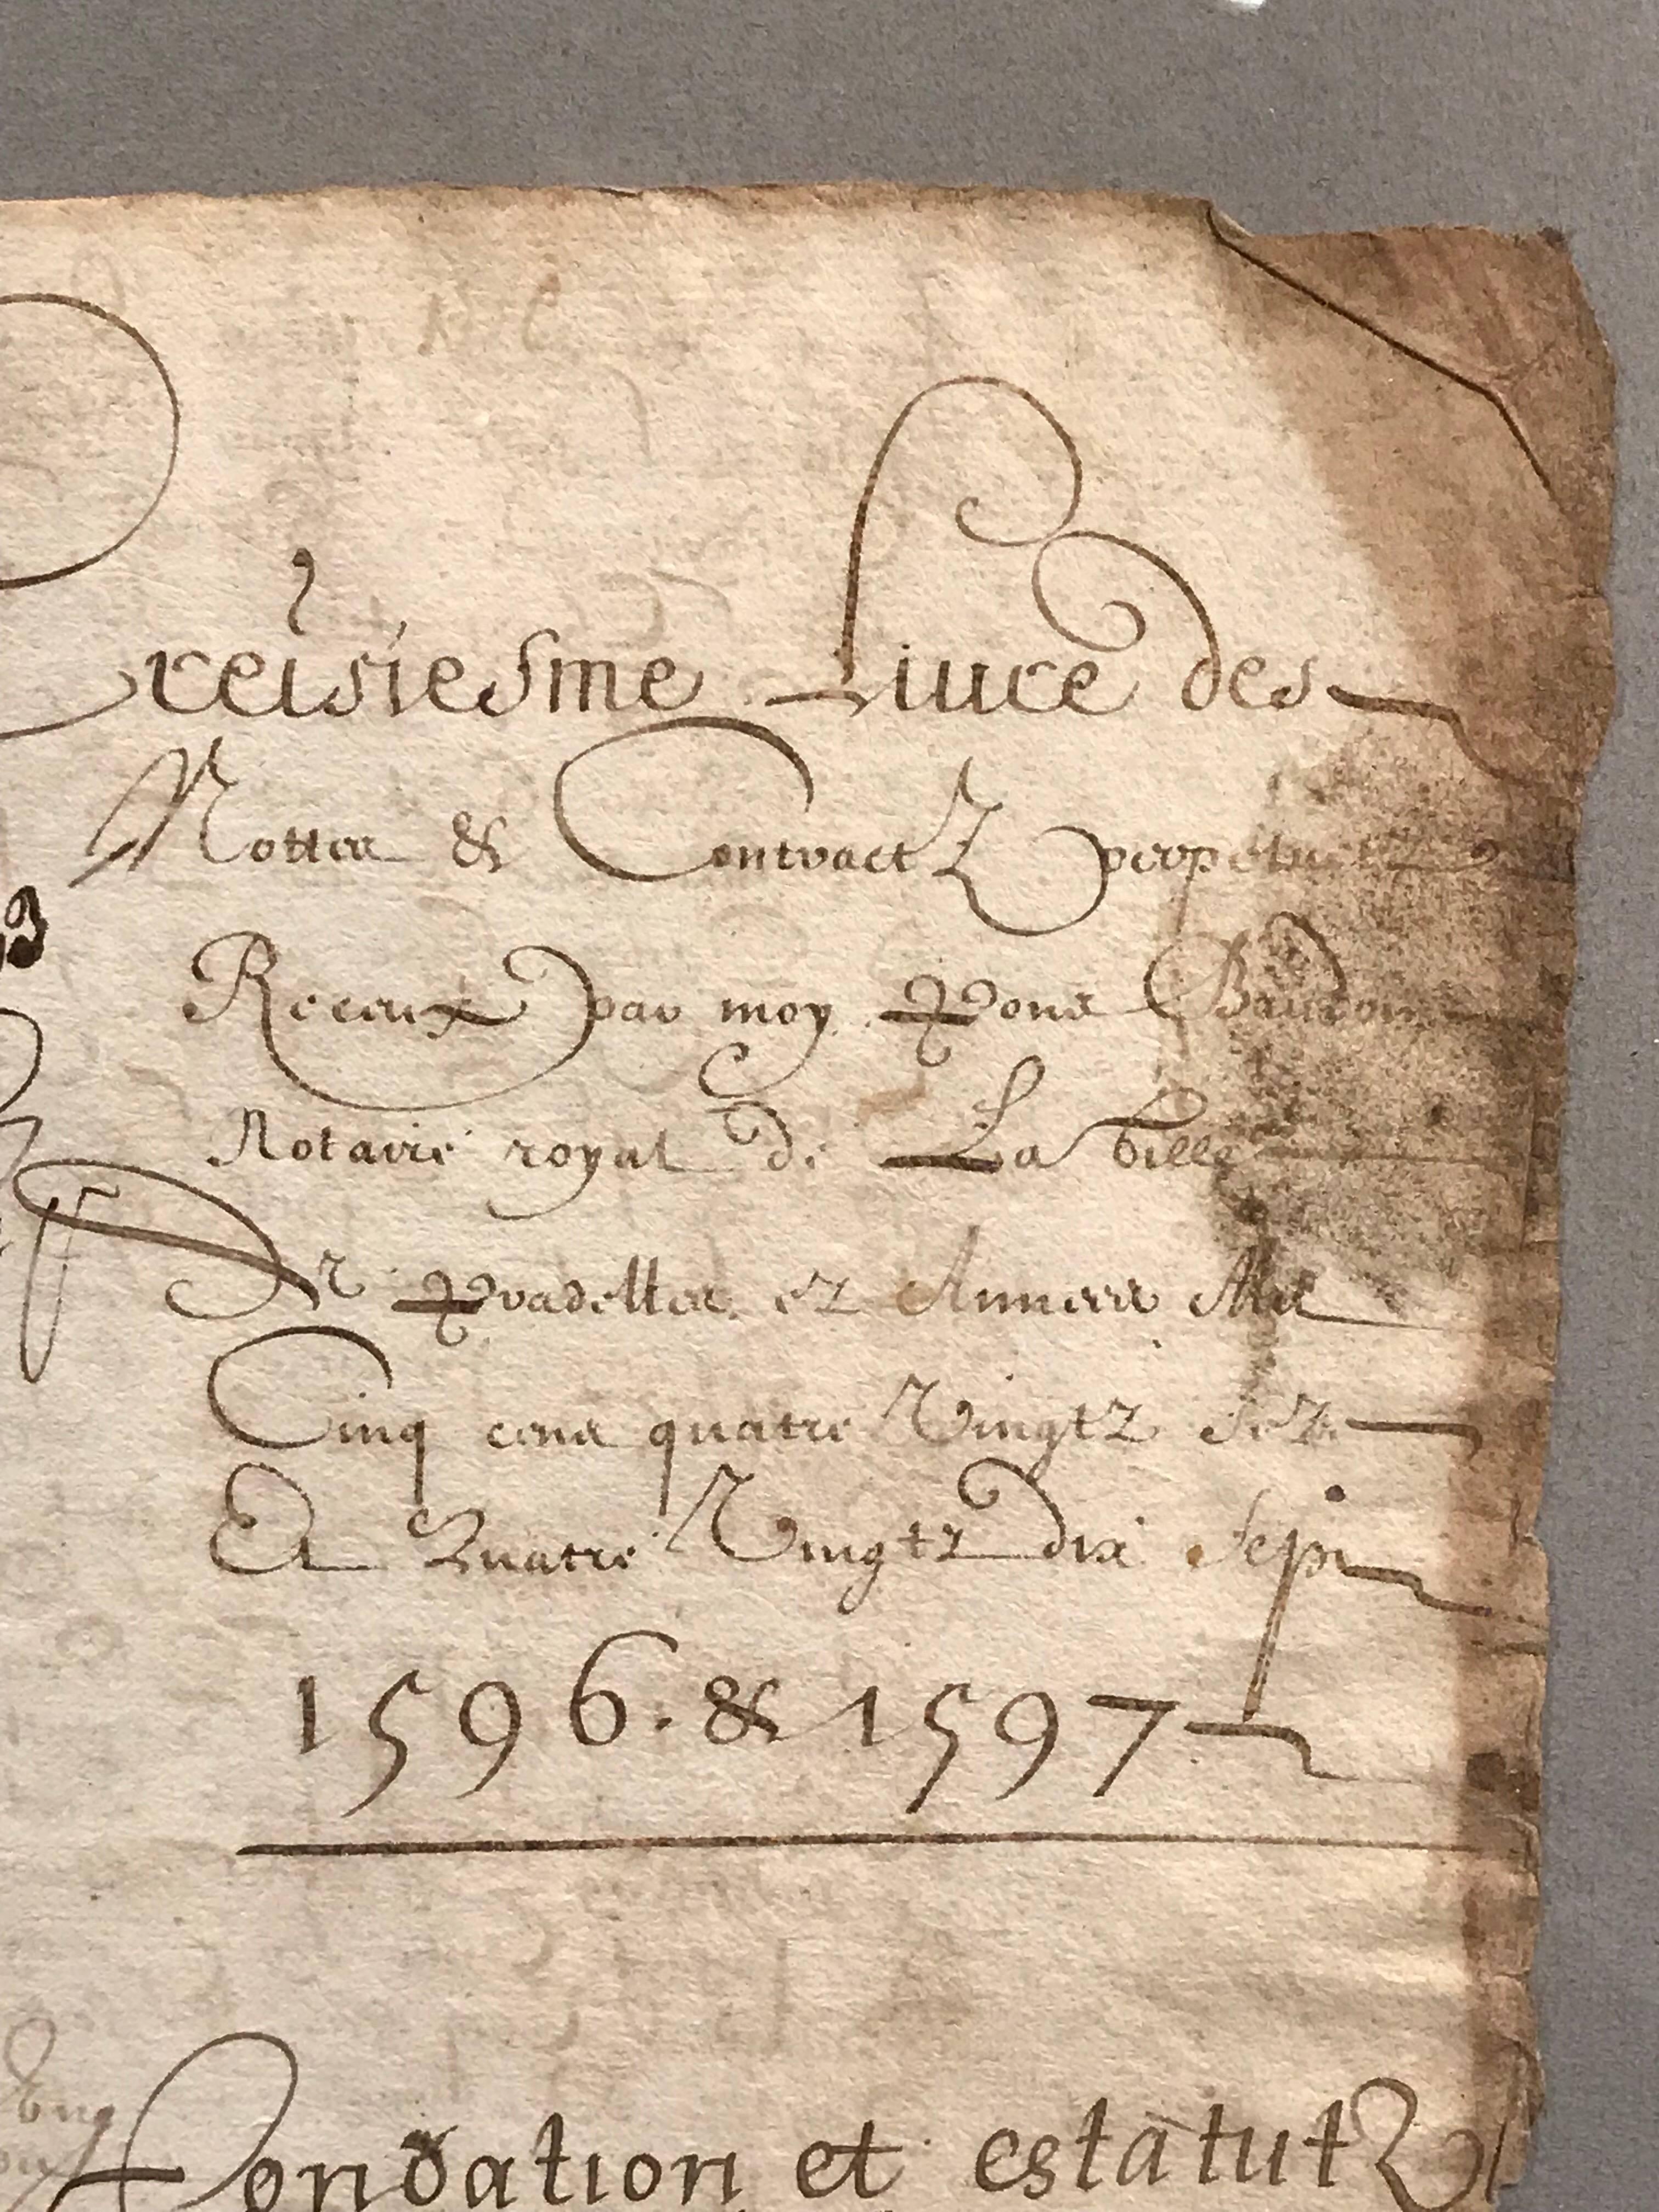 Treisiesme Liure des
Nottes & Contractz perpetuelz
Receux par moy Pons Baudoin
Notaire royal de La Ville
De Pradelles ez Annees Mil
Cinq cens quatre Vingtz sez
Et Quatre Vingtz dix sept
1596. & 1597
Fondation et estatutz